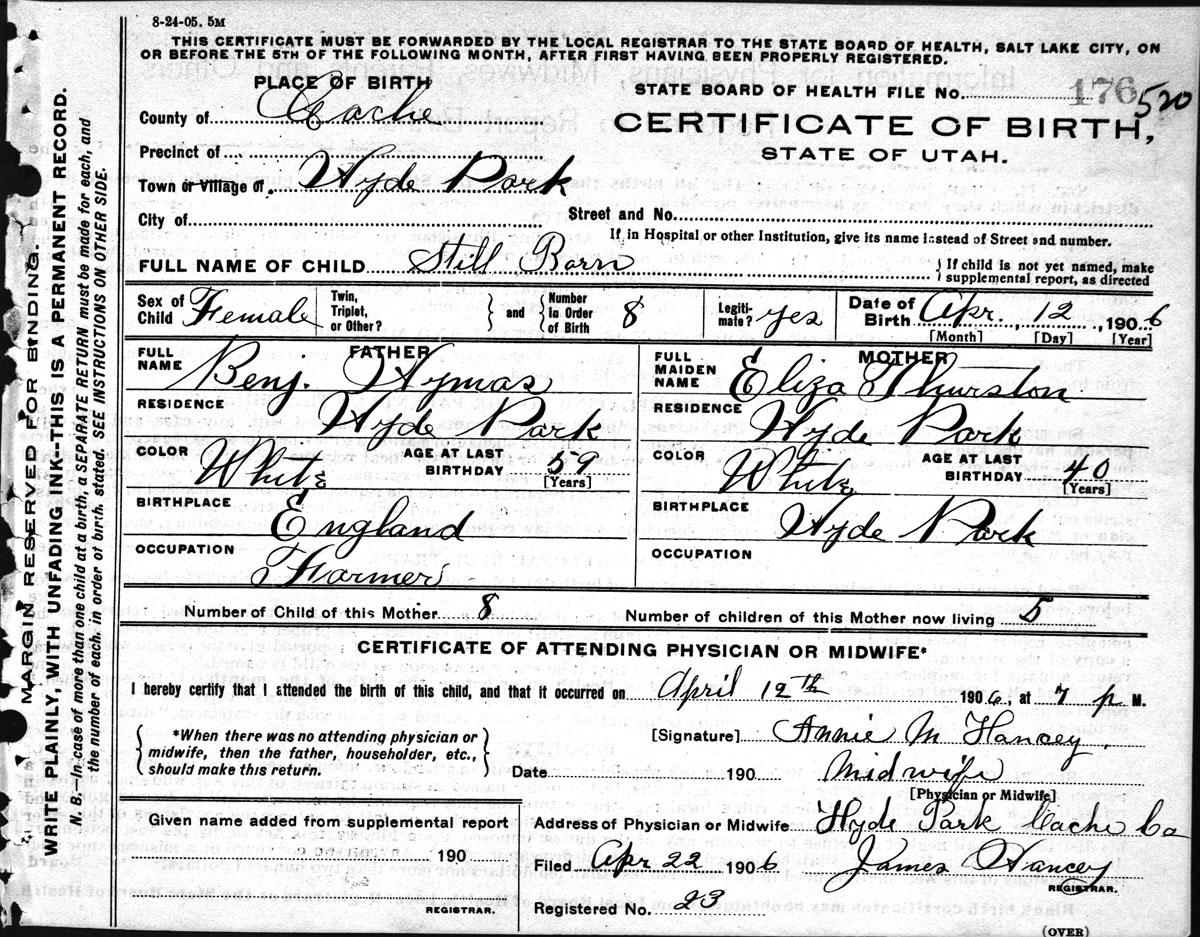 8-24-05. 5M
THIS CERTIFICATE MUST BE FORWARDED BY THE LOCAL REGISTRAR TO THE STATE BOARD OF HEALTH, SALT LAKE CITY, ON
OR BEFORE THE 5TH OF THE FOLLOWING MONTH, AFTER FIRST HAVING BEEN PROPERLY REGISTERED.
PLACE OF BIRTH
STATE BOARD OF HEALTH FILE No. 176 520
County of Cache
CERTIFICATE OF BIRTH,
STATE OF UTAH.
Precinct of
Town or Village of Hyde Park
City of
Street and No.
If in Hospital or other Institution, give its name instead of Street and number.
FULL NAME OF CHILD Still Born
{ If child is not yet named, make
supplemental report, as directed
Sex of Child Female
Twin, Triplet, or Other? } and { Number In Order of Birth 8
Legiti- mate? yes
Date of Birth Apr. 12, 1906
[Month] [Day] [Year]
FATHER
FULL NAME Benj. Hymas
RESIDENCE Hyde Park
COLOR White AGE AT LAST BIRTHDAY 59
[Years]
BIRTHPLACE England
OCCUPATION Farmer
MOTHER
FULL MAIDEN NAME Eliza Thurston
RESIDENCE Hyde Park
COLOR White AGE AT LAST BIRTHDAY 40
[Years]
BIRTHPLACE Hyde Park
OCCUPATION
Number of Child of this Mother 8 Number of children of this Mother now living 5
CERTIFICATE OF ATTENDING PHYSICIAN OR MIDWIFE*
I hereby certify that I attended the birth of this child, and that it occurred on April 12th 1906, at 7 p M.
{ *When there was no attending physician or
midwife, then the father, householder, etc.,
should make this return. }
[Signature] Annie M Hancey.
Date 190 Midwife
[Physician or Midwife]
Given name added from supplemental report
190
REGISTRAR.
Address of Physician or Midwife Hyde Park Cache Co
Filed Apr 22 1906 James Hancey
REGISTRAR.
Registered No. 23
(OVER)
MARGIN RESERVED FOR BINDING
WRITE PLAINLY, WITH UNFADING INK--THIS IS A PERMANENT RECORD.
N. B.—In case of more than one child at a birth, a SEPARATE RETURN must be made for each, and
the number of each, in order of birth, stated. SEE INSTRUCTIONS ON OTHER SIDE.